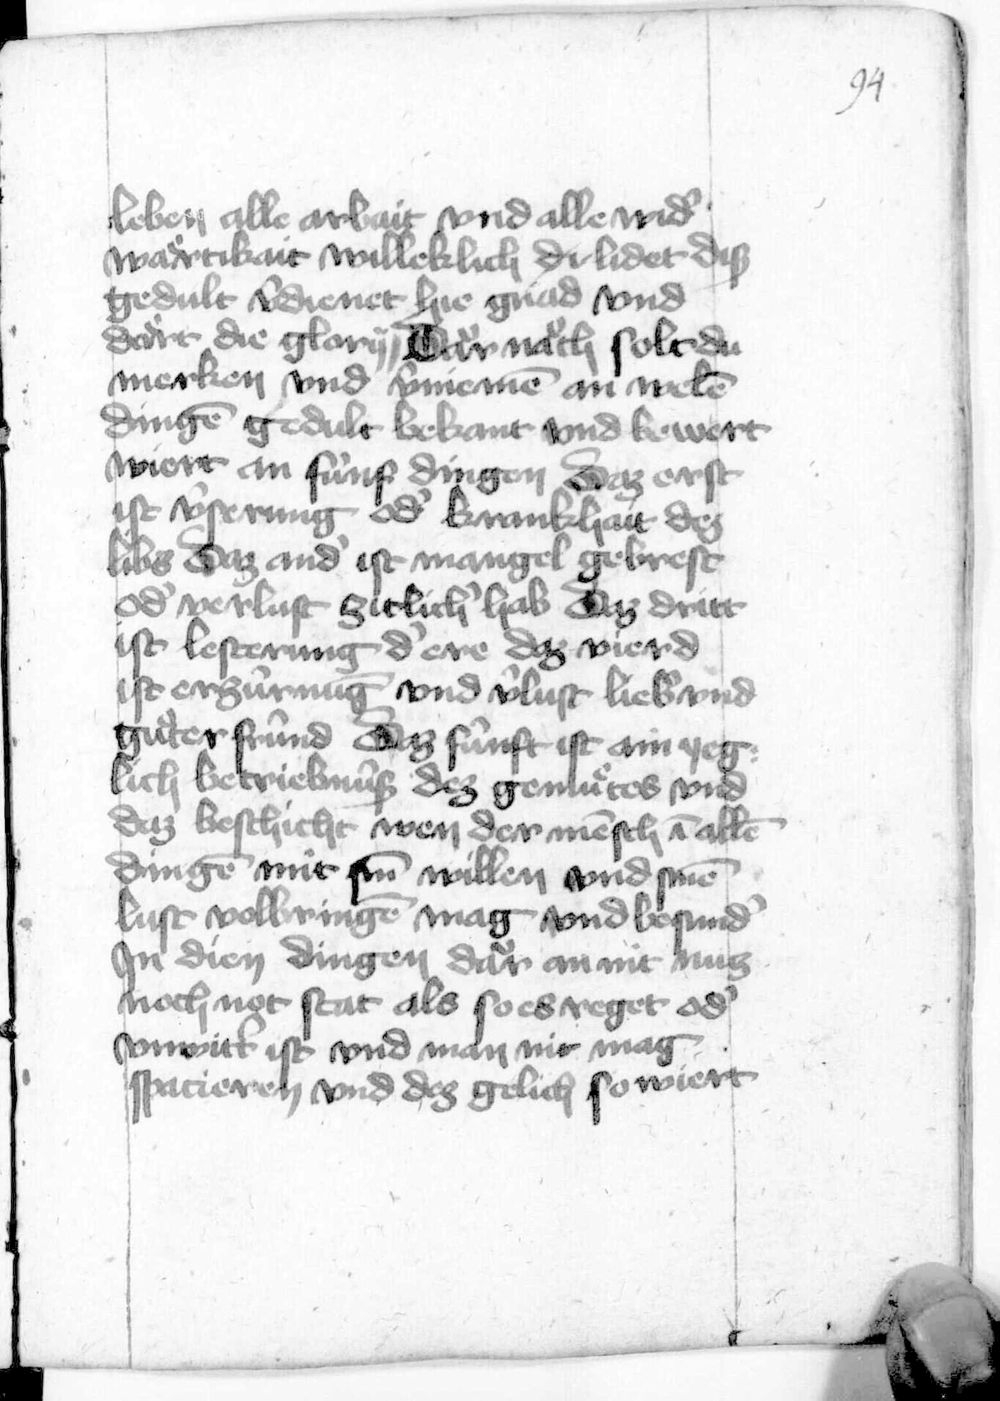 94
leben alle arbait vnd alle wid̾
wärtikait willeklich di lidet diß
gedult v̾dienet hie gnad vnd
därt die glorÿ Där näch solt du
merken vnd v̾niemē an welē
dingē gedult bekant vnd bewert
wiert an fünf dingen Daz erst
ist v̾serung od̾ krankhait dez
libs Daz and̾ ist mangel gebrest
od̾ verlust zitlich̾ hab Daz dritt
ist lesterung d̾ ere daz vierd
ist erzürnūg vnd v̾lust lieb̾ vnd
guͦter fründ Daz fünft ist ain yeg⸗
lich betriebnüß dez gemuͤtes vnd
daz beschicht wen der mēsch ī allē
dingē nüt sin̄ willen vnd sinē
lust volbringē mag vnd besund̾
In dien dingen där an nit nuz
noch not stat als so es reget od̾
vnwitt̾ ist vnd man nit mag
spacieren vnd dez gelich so wiert